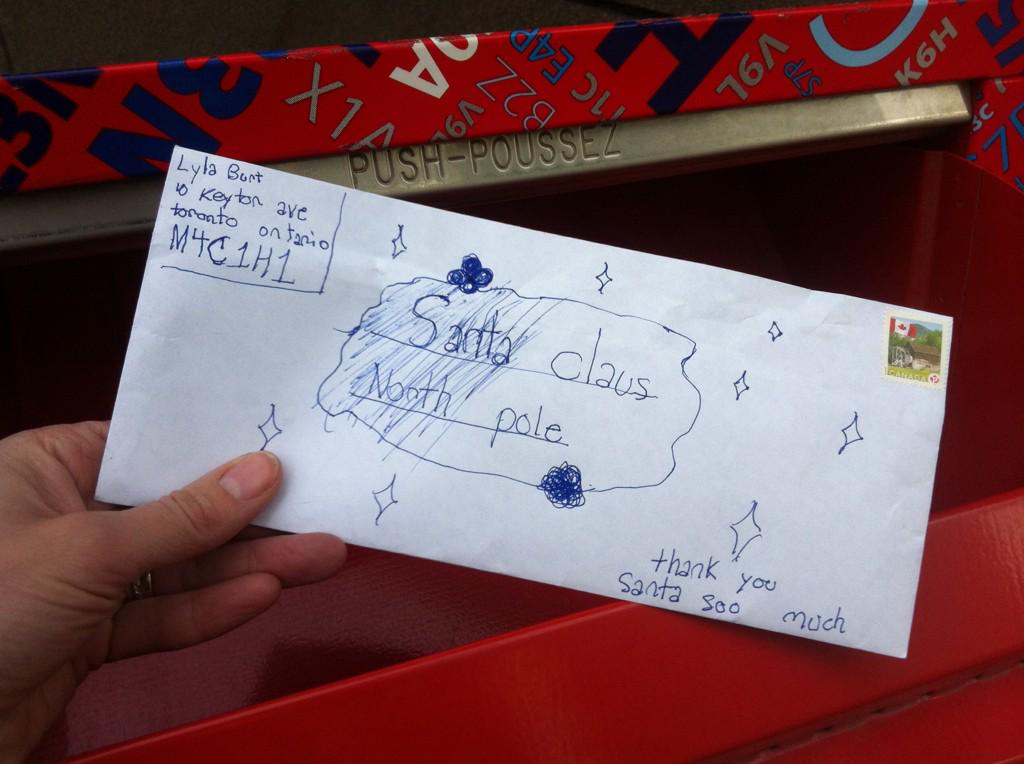 0A
E4P
3N
N3
X1A
V9L
B2Z
11C
V9L
S7P
K6H
PUSH-POUSSEZ
Lyla Burt
10 Keyton ave
toronto ontario
M4C1H1
Santa claus
North pole
CANADA P
thank you
santa soo much